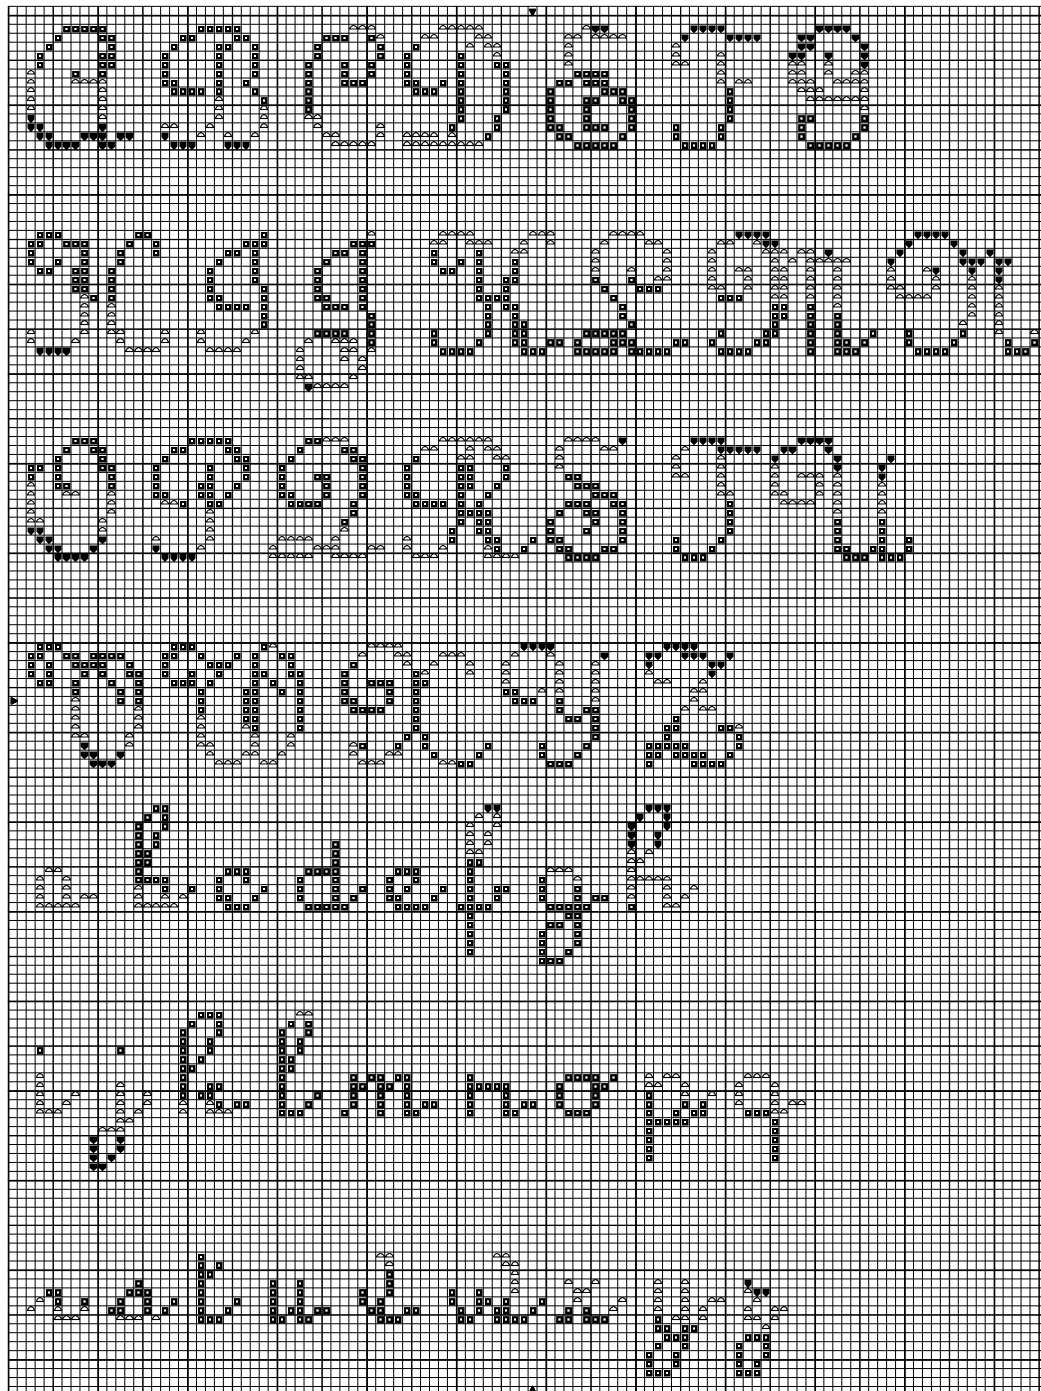 A B C D E F G
H I J K L M N
O P Q R S T U
V W X Y Z
a b c d e f g h
i j k l m n o p q
r s t u v w x y z